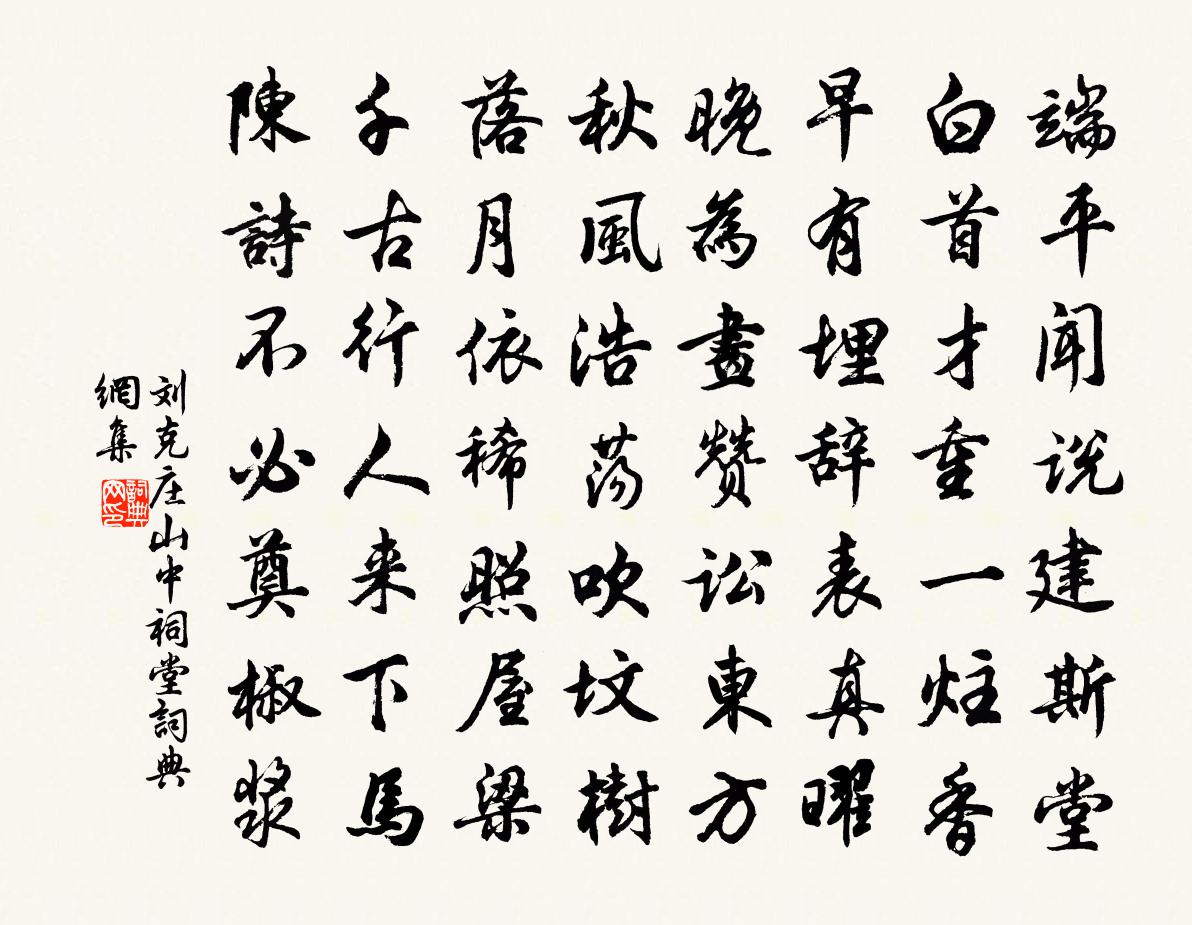 端平闻说建斯堂
白首才重一炷香
早有埋辞表真曜
晚為畫赞讼東方
秋風浩荡吹坟樹
落月依稀照屋梁
千古行人来下馬
陳詩不必奠椒浆
刘克庄山中祠堂詞典
網集
詞典
网印